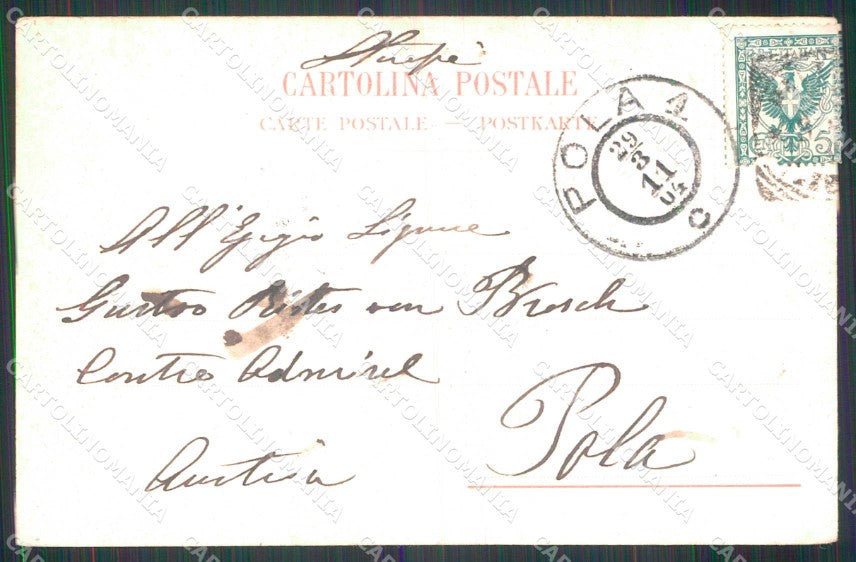 Stampe
CARTOLINA POSTALE
CARTE POSTALE — POSTKARTE
POLA 1
29
3
11
04
C
5
All' Egregio Signore
Gustav Ritter von Brosch
Contre Admiral
Austria
Pola
CARTOLINOMANIA